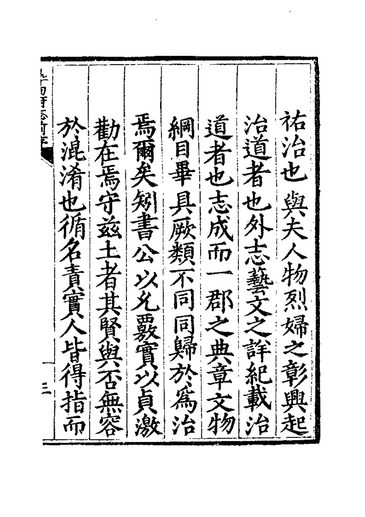 祐治也與夫人物烈婦之彰興起
治道者也外志藝文之詳紀載治
道者也志成而一郡之典章文物
綱目畢具厥類不同同歸於為治
焉爾矣矧書公以允覈實以貞激
勸在焉守兹土者其賢與否無容
於混淆也循名責實人皆得指而
三